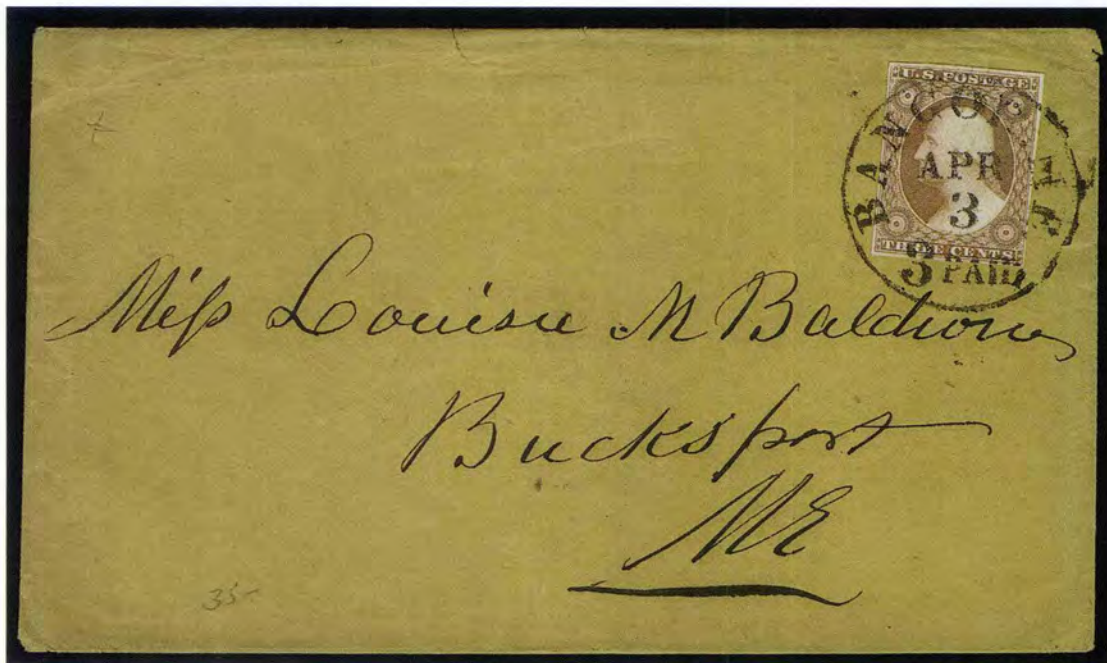 U.S. POSTAGE
BANGOR ME
APR
3
3 PAID
THREE CENTS
Miss Louisa M Baldwin
Bucksport
ME
35-